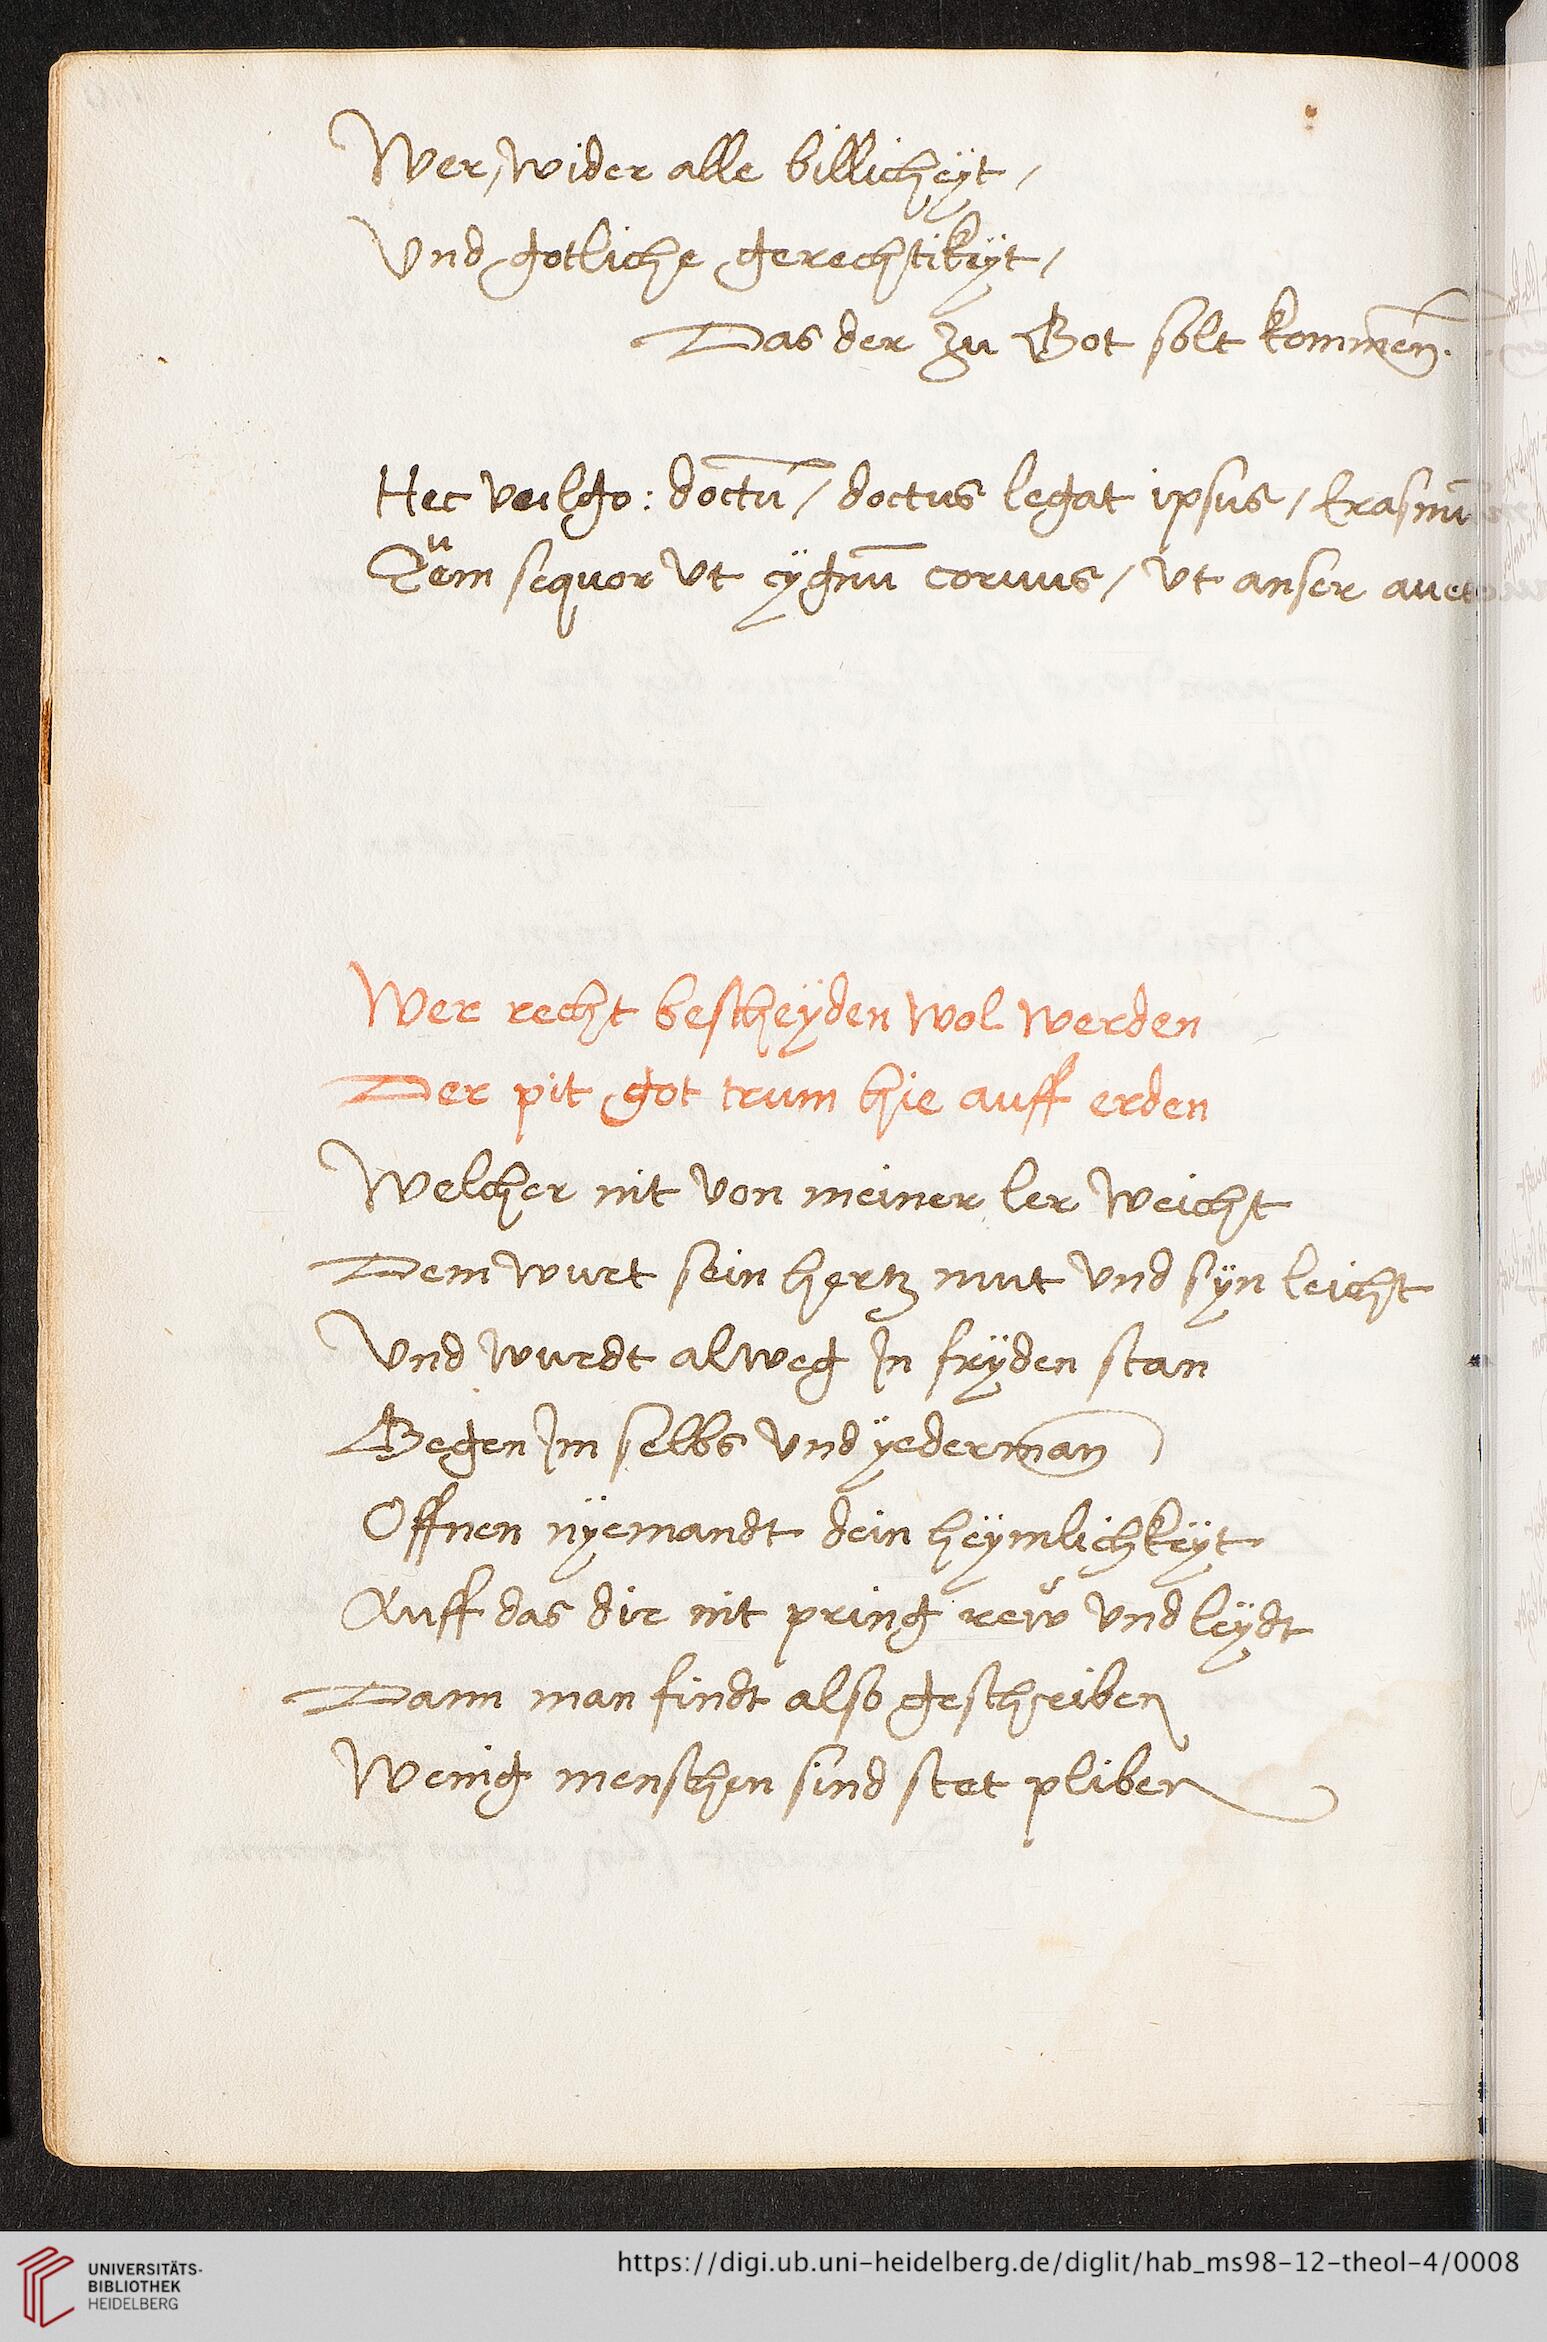 Wer, wider alle billicheÿt /
Vnd gotliche gerechtikeÿt /
Das der zu Got solt kommen̄.
Hec vulgo: doctū / doctus legat ipsus / Erasmū
Qͧem sequor vt cÿgnū coruus / vt anser
Wer recht bescheÿden wol werden
Der pit got trum hie auff erden
Welcher nit von meiner ler weicht
Dem wurt sein hertz mut vnd sÿn leicht
Vnd wurdt alweg Jn frÿden stan
Gegen Jm selbs vnd ÿederman
Offnen nÿemandt dein heÿmlichkeÿt
Auff das dir nit pring rew̌ vnd leÿdt
Dann man findt also geschreiben
Wenig menschen sind stet pliben
UNIVERSITÄTS-
BIBLIOTHEK
HEIDELBERG
https://digi.ub.uni-heidelberg.de/diglit/hab_ms98-12-theol-4/0008